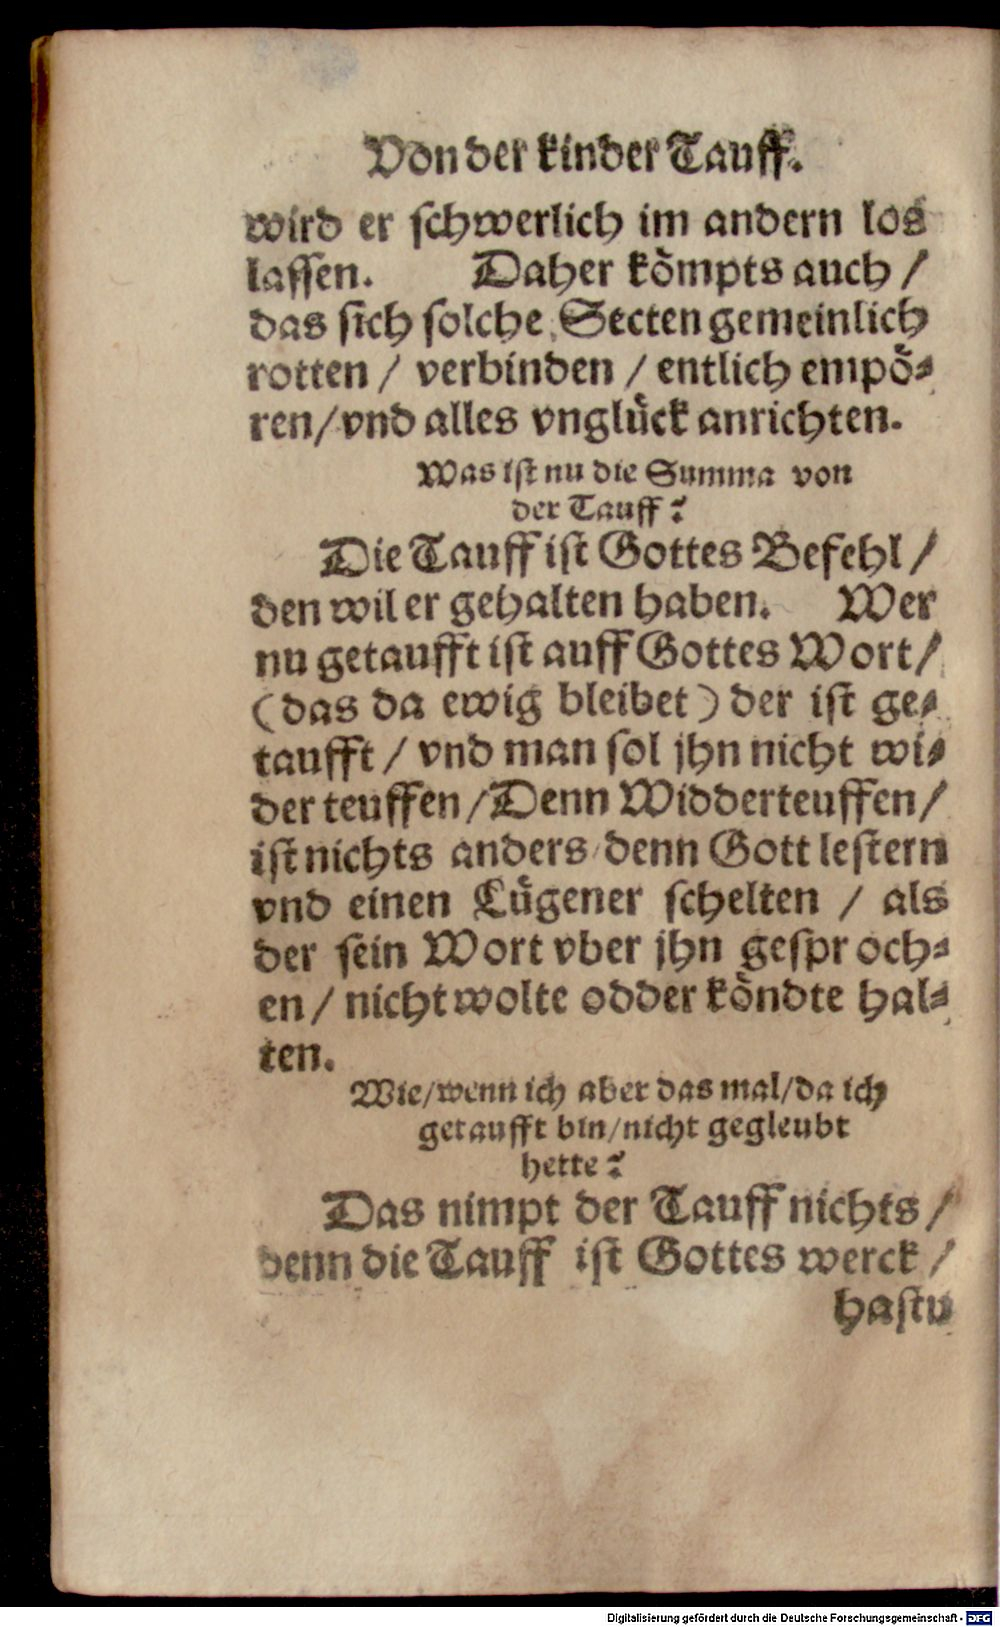 Von der kinder Tauff.
wird er schwerlich im andern los
lassen. Daher kömpts auch /
das sich solche Secten gemeinlich
rotten / verbinden / entlich empö-
ren / vnd alles vnglück anrichten.
Was ist nu die Summa von
der Tauff?
Die Tauff ist Gottes Befehl /
den wil er gehalten haben. Wer
nu getaufft ist auff Gottes Wort /
(das da ewig bleibet) der ist ge-
taufft / vnd man sol jhn nicht wi-
der teuffen / Denn Widderteuffen /
ist nichts anders denn Gott lestern
vnd einen Lügener schelten / als
der sein Wort vber jhn gesproch-
en / nicht wolte odder köndte hal-
ten.
Wie / wenn ich aber das mal / da ich
getaufft bin / nicht gegleubt
hette?
Das nimpt der Tauff nichts /
denn die Tauff ist Gottes werck /
hastu
Digitalisierung gefördert durch die Deutsche Forschungsgemeinschaft - DFG